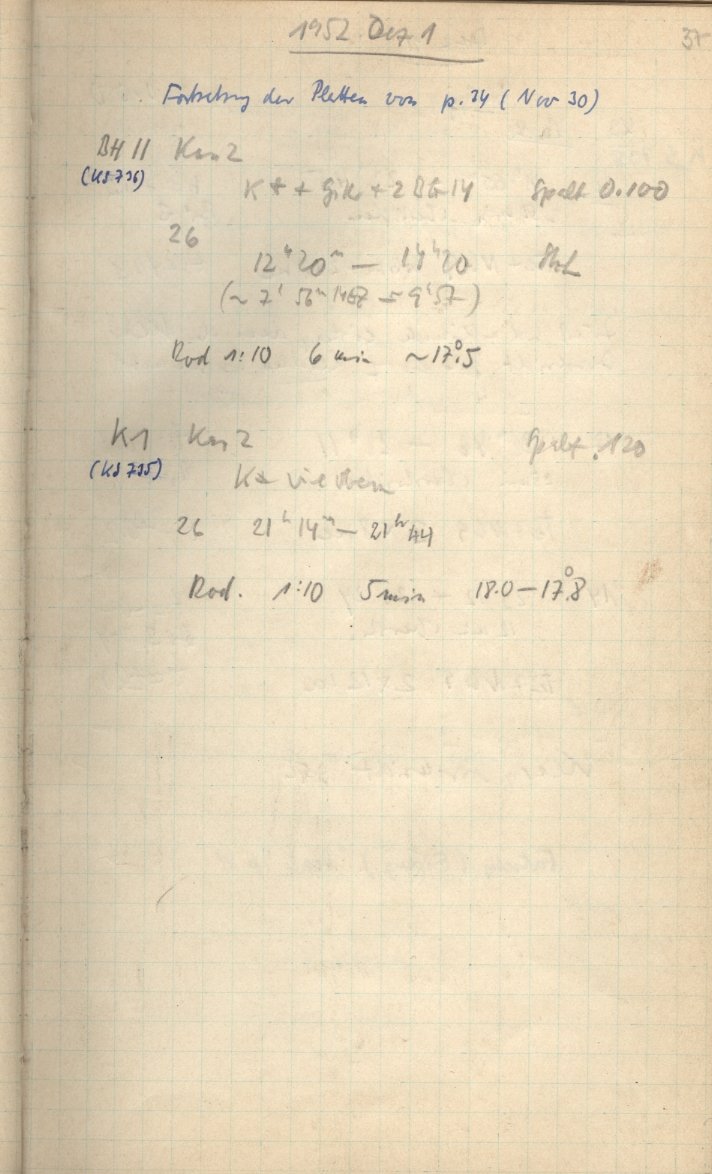 1952 Dez 1
Fortsetzung der Platten von p. 34 (Nov 30)
BH II Kas 2
(KS 736)
K * + Gitt + 2 BG 14 Spalt 0.100
26
12ʰ20ᵐ — 14ʰ20
(~ 7ʰ 56ᵐ MEZ – 9ʰ57)
Rod 1:10 6 min ~17°.5
K1 Kas 2 Spalt .120
(KS 735)
K* wie oben
26 21ʰ 14ᵐ — 21ʰ 44
Rod. 1:10 5 min 18.0 — 17°.8